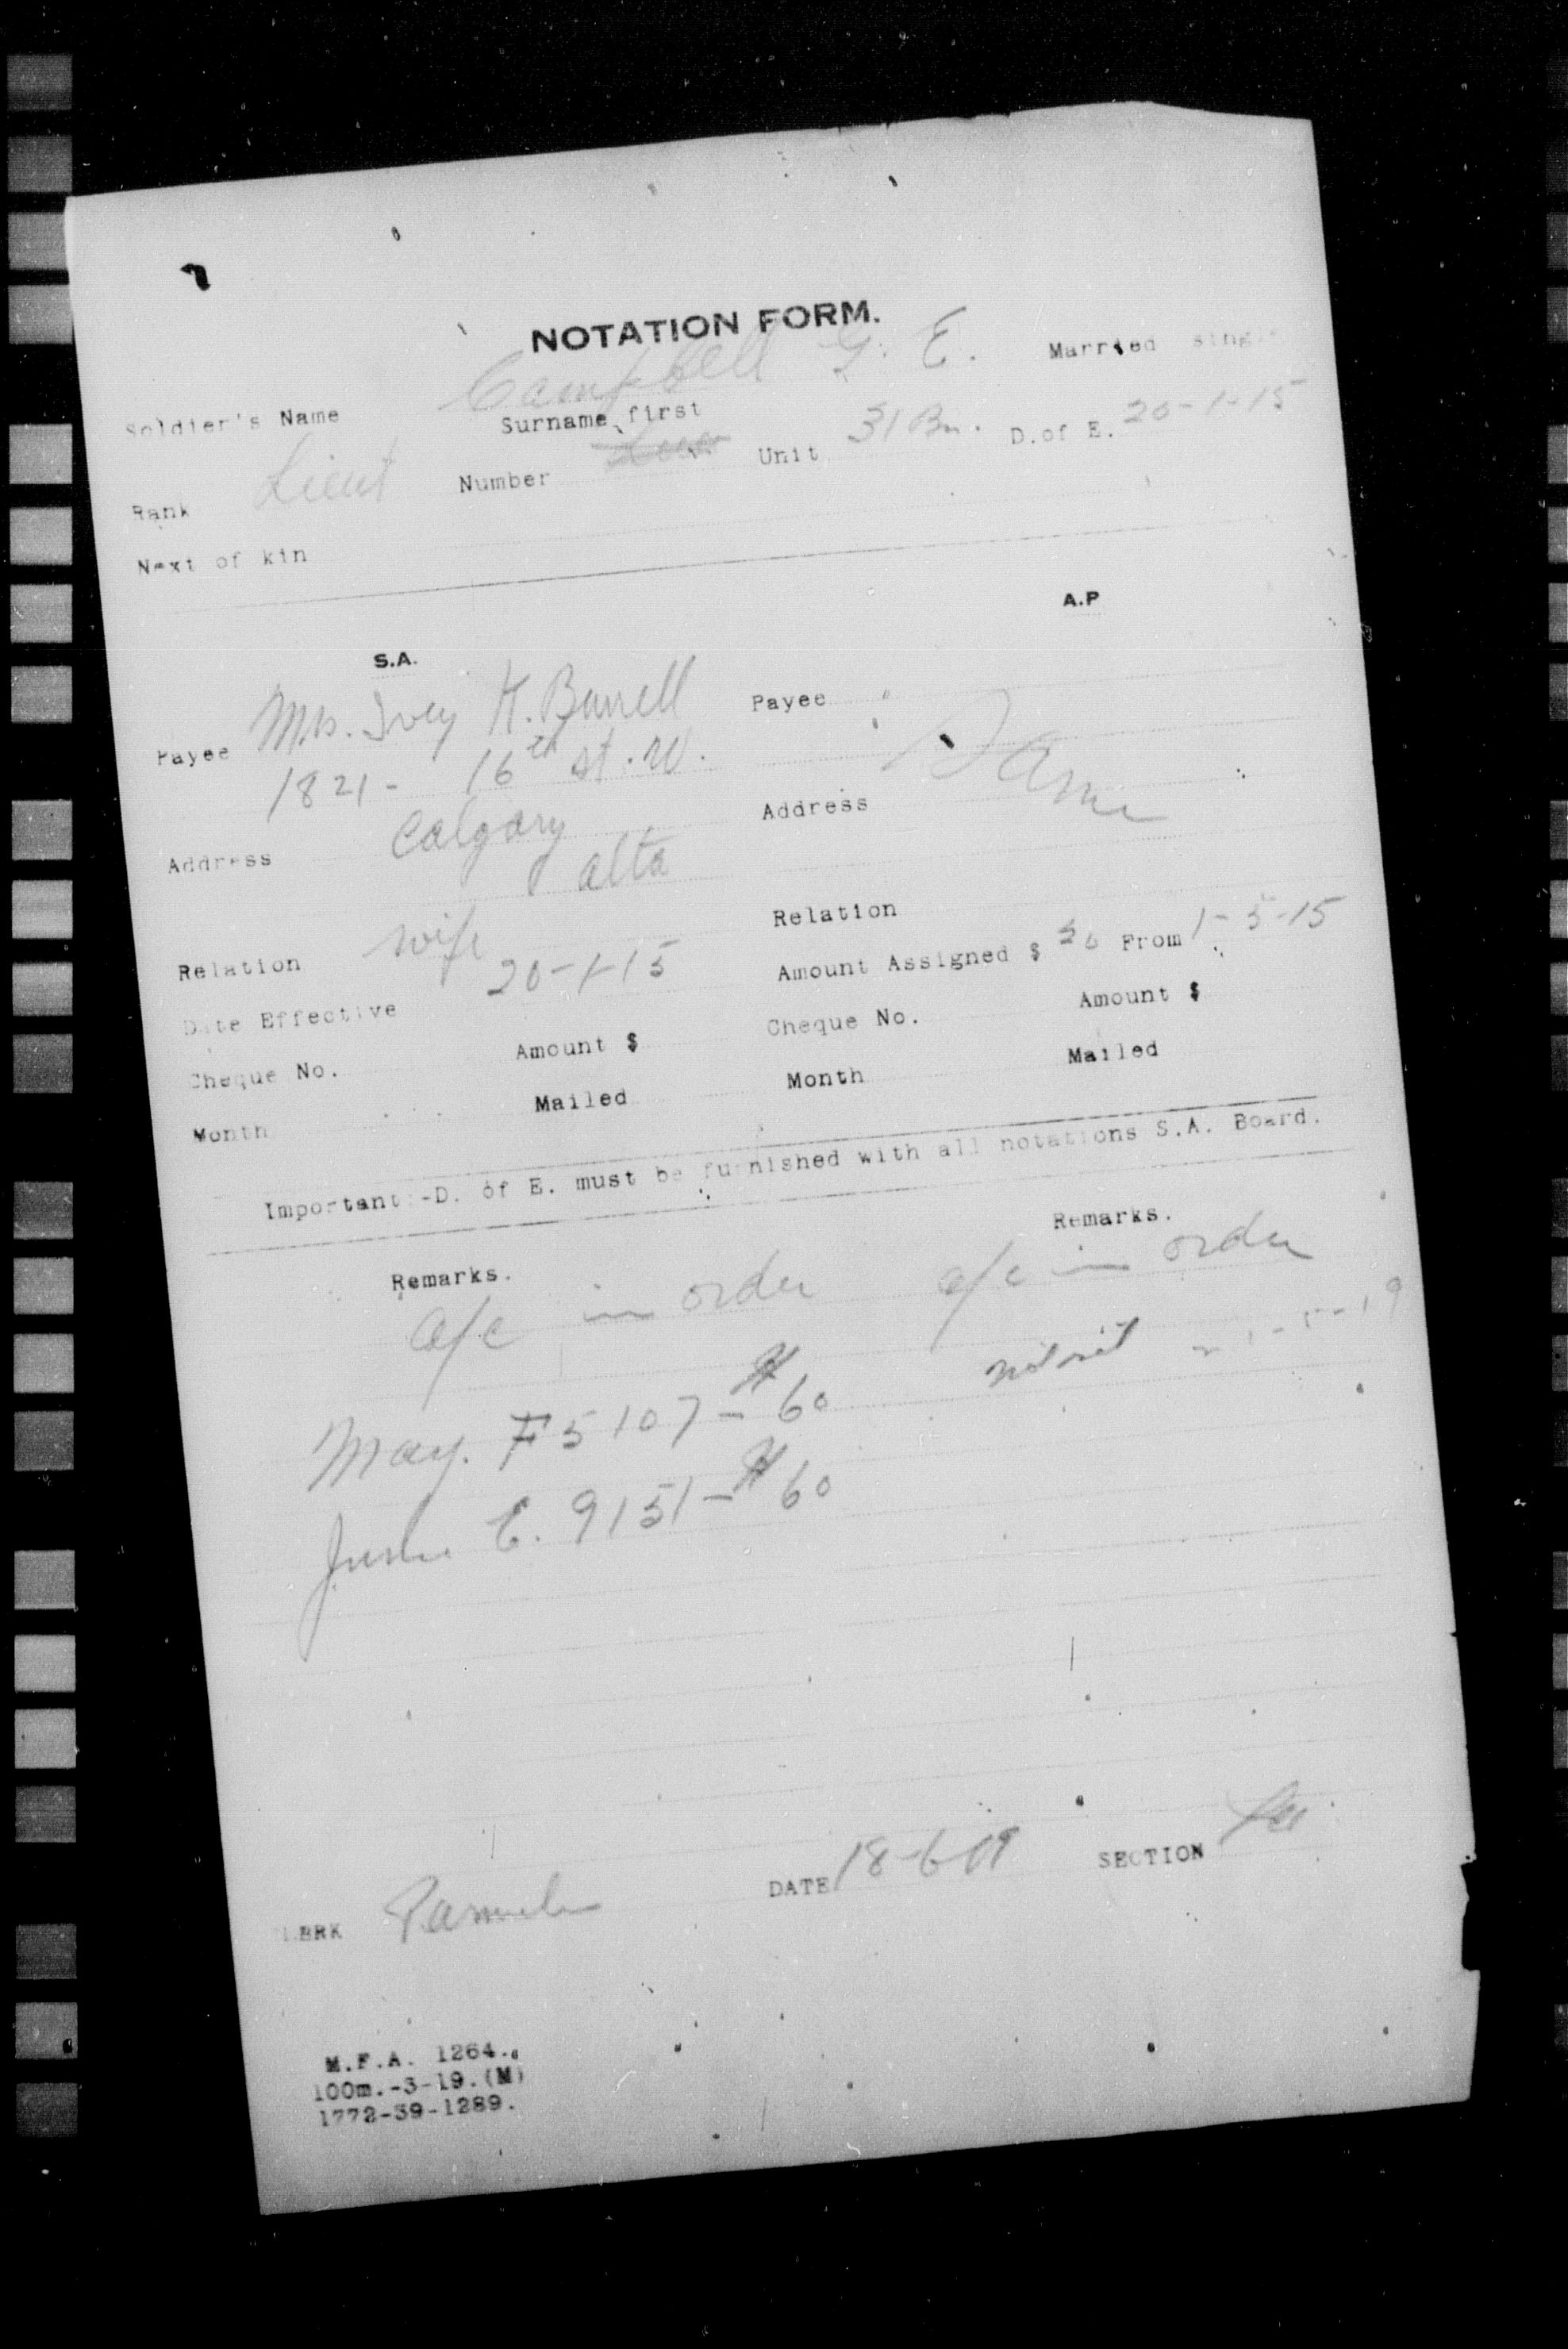 NOTATION FORM.
Soldier's Name Campbell G. E. Married Sing
Surname first
Rank Lieut Number Unit 31 Bn. D.of E. 20-1-15
Next of kin
S.A. A.P
Payee Mrs. Ivey H. Burrell Payee
1821- 16th St. W. Same
Address Calgary Address
Alta
Relation wife Relation
Date Effective 20-1-15 Amount Assigned $ From 1-5-15
Cheque No. Amount $ Cheque No. Amount $
Month Mailed Month Mailed
Important:-D. of E. must be furnished with all notations S.A. Board.
Remarks. Remarks.
a/c in order a/c in order
May. F5107-$60
June E. 9151-$60
CLERK DATE 18-6-19 SECTION
M.F.A. 1264.
100m.-3-19.(M)
1772-39-1289.